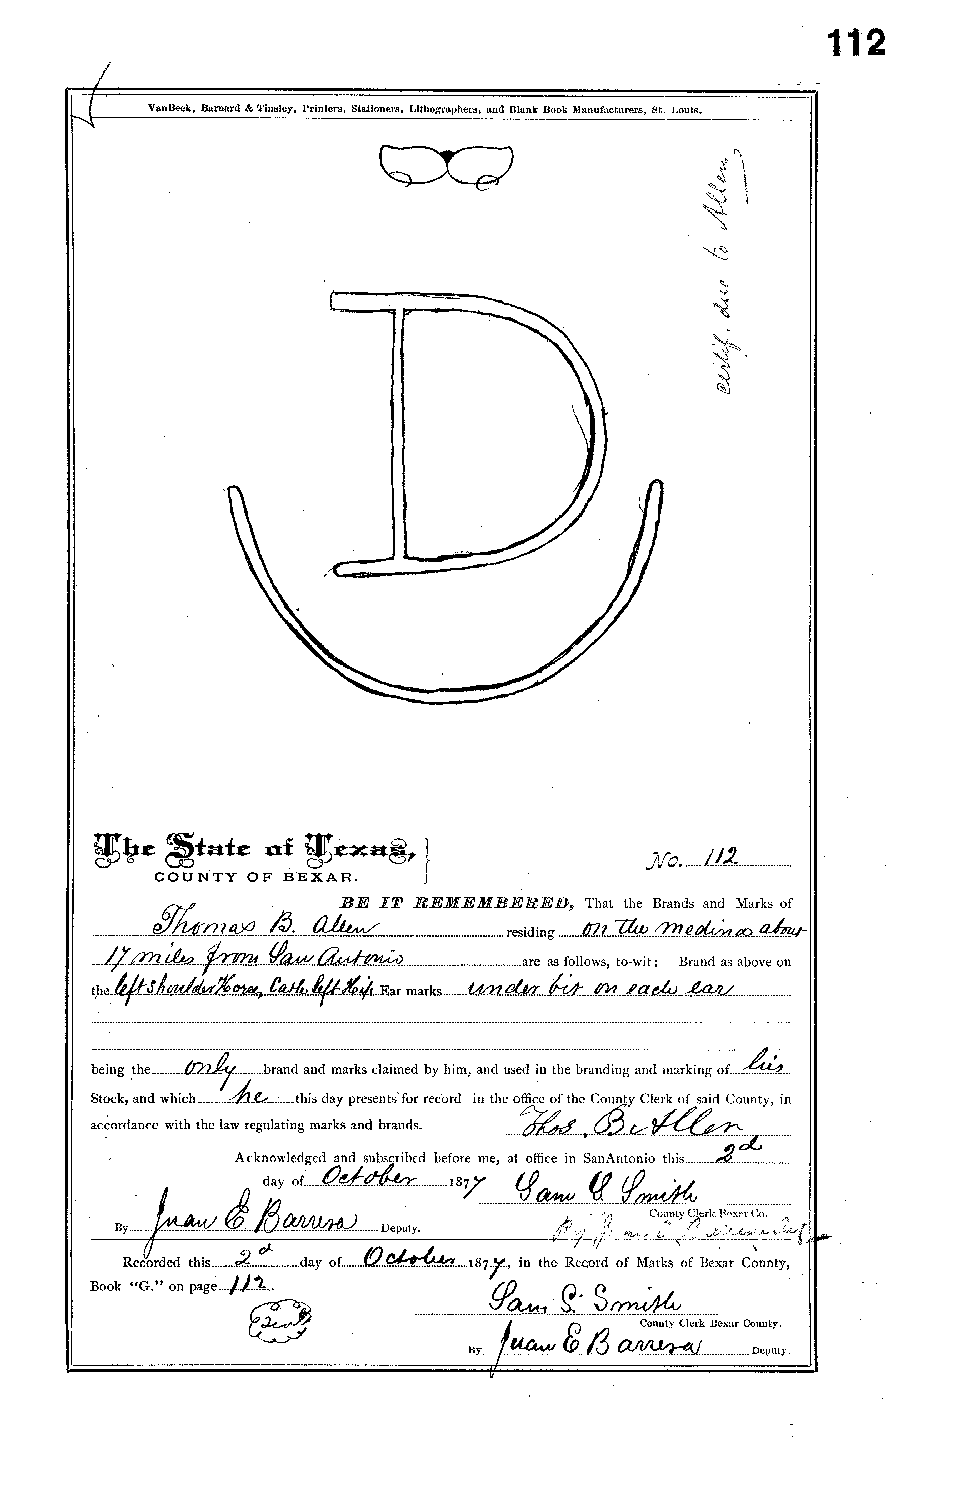 112
VanBeek, Barnard & Tinsley, Printers, Stationers, Lithographers, and Blank Book Manufacturers, St. Louis.
certif. due to Allen
The State of Texas,
COUNTY OF BEXAR.
No. 112
BE IT REMEMBERED, That the Brands and Marks of
Thomas B. Aleen residing on the medina about
17 miles from San Antonio are as follows, to-wit: Brand as above on
the left shoulder Horse, Cattle left Hip Ear marks under bit on each ear
being the only brand and marks claimed by him, and used in the branding and marking of his
Stock, and which he this day presents for record in the office of the County Clerk of said County, in
accordance with the law regulating marks and brands. Thos. B. Allen
Acknowledged and subscribed before me, at office in San Antonio this 2d
day of October 1877 Sam S Smith
County Clerk Bexar Co.
By Juan E Barrera Deputy. By
Recorded this 2d day of October 1877, in the Record of Marks of Bexar County,
Book "G." on page 112.
Sam S. Smith
County Clerk Bexar County.
By Juan E Barrera Deputy.